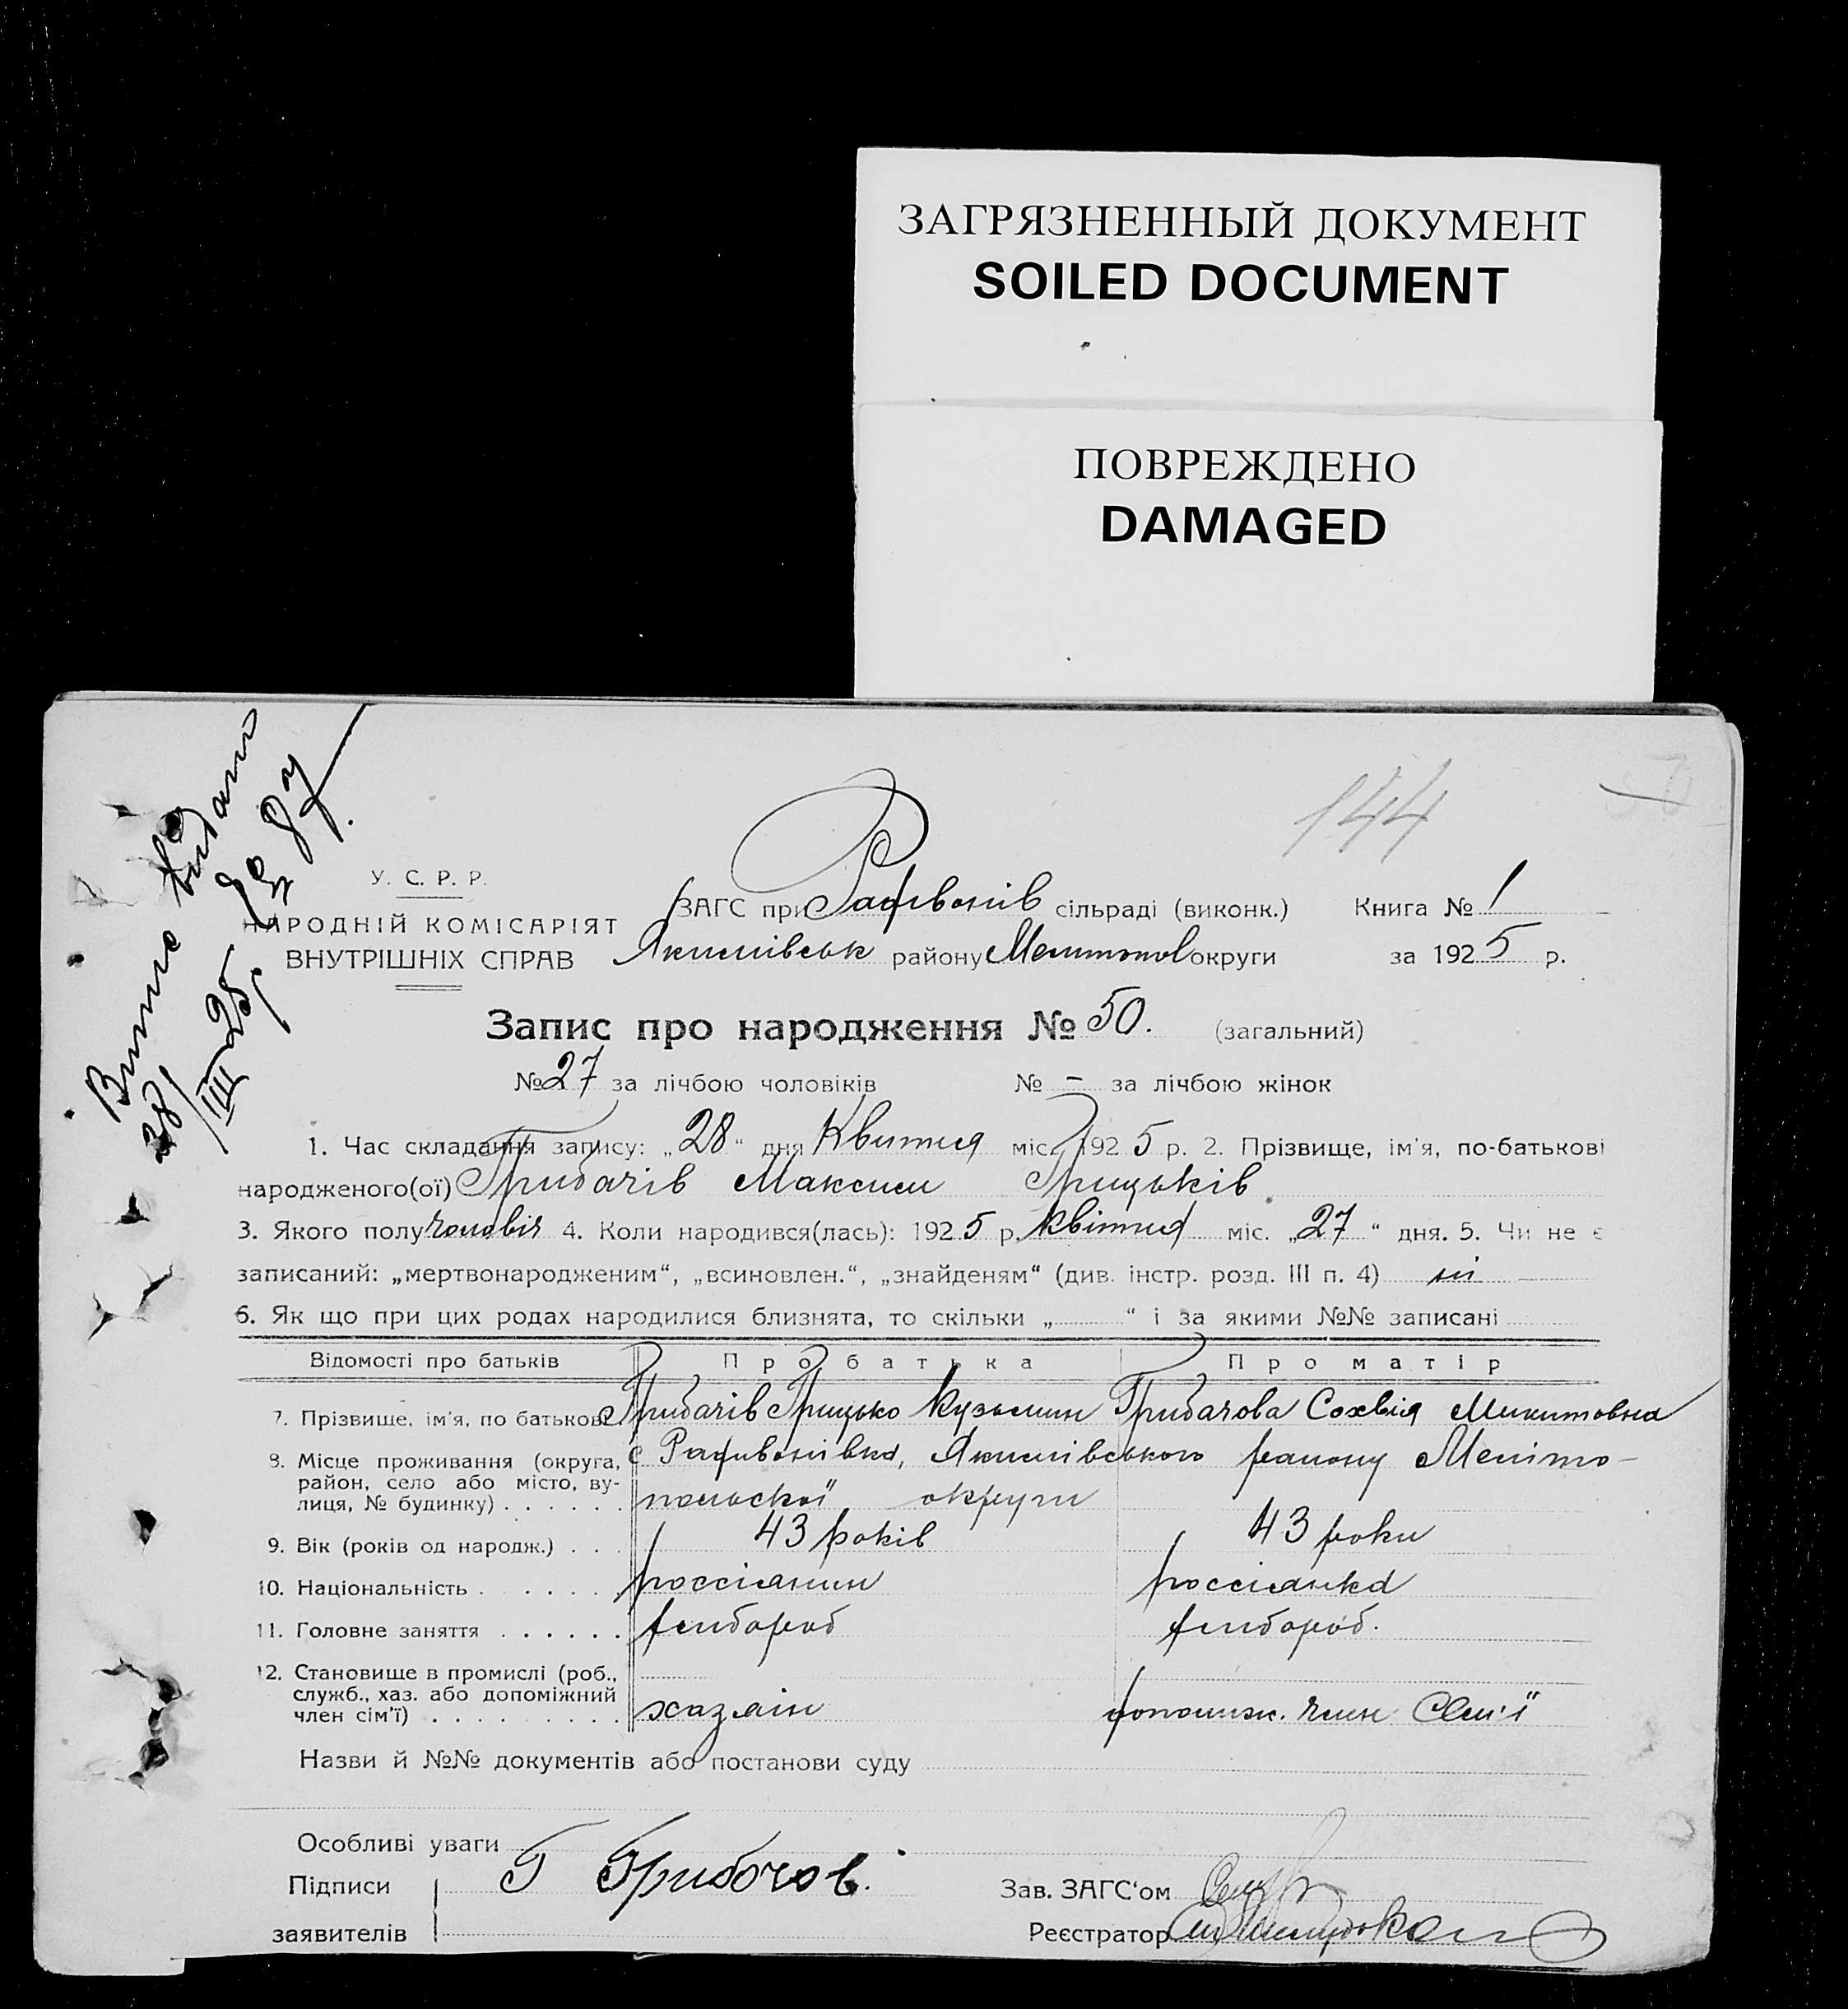 ЗАГРЯЗНЕННЫЙ ДОКУМЕНТ
SOILED DOCUMENT
ПОВРЕЖДЕНО
DAMAGED
144
28/III 25
У. С. Р. Р.
НАРОДНІЙ КОМІСАРІЯТ
ВНУТРІШНІХ СПРАВ
ЗАГС при сільраді (виконк.) Книга № 1
Якимівськ району Мелитопол округи за 1925 р.
Запис про народження № 50. (загальний)
№ 27 за лічбою чоловіків № - за лічбою жінок
1. Час складання запису: „28“ дня Квитня міс. 1925 р. 2. Прізвище, ім'я, по-батькові
народженого(ої) Грибачів Максим Грицьків
3. Якого полу чоловіч 4. Коли народився(лась): 1925 р. Квітня міс. „27“ дня. 5. Чи не є
записаний: „мертвонародженим“, „всиновлен.“, „знайденям“ (див. інстр. розд. III п. 4) ні
6. Як що при цих родах народилися близнята, то скільки „ “ і за якими №№ записані
Відомості про батьків Про батька Про матір
7. Прізвище, ім'я, по батькові Грибачів Грицько Кузьмин Грибачова Сохвія Микитовна
8. Місце проживання (округа, район, село або місто, вулиця, № будинку) . . . . . . с Радивонівка, Якимівського району Меліто-
польскої округи
9. Вік (років од народж.) . . . 43 років 43 роки
10. Національність . . . . . . россіянин россіянка
11. Головне заняття . . . . . . хлібороб хлібороб.
12. Становище в промислі (роб., служб., хаз. або допоміжний член сім'ї) . . . . . . . . . хазяін допоміж. член Сем'ї
Назви й №№ документів або постанови суду
Особливі уваги
Підписи Г Грибочов.
Зав. ЗАГС'ом
заявителів
Реєстратор